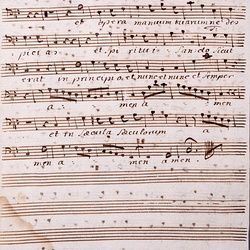 et opera manuum tuarum ne des
picias et spiritui Sancto Sicut
erat in principio et nunc et nunc et Semper
a: men a men
et in Sæcula Sæculorum a
men a: men amen